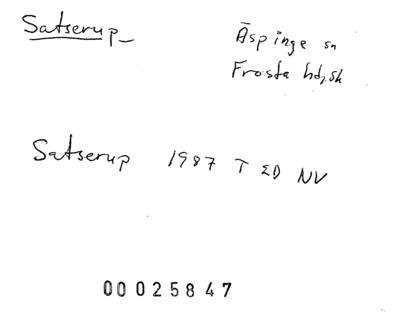 Satserup
Äspinge sn
Frosta hd, sk
Satserup 1987 T ED NV
00025847